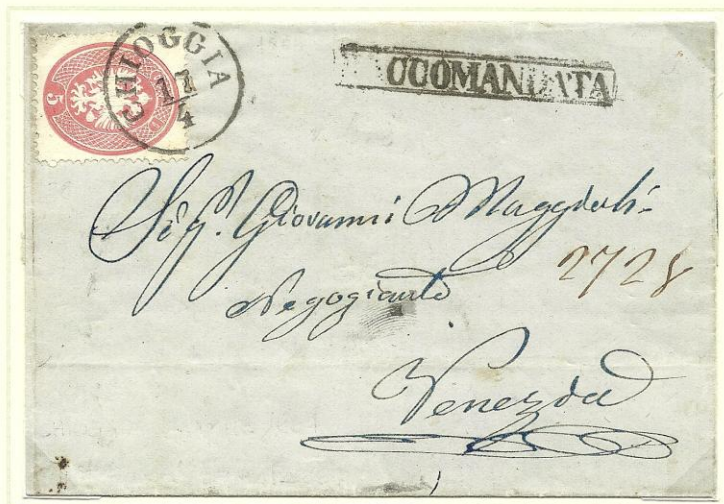 CHIOGGIA
17
4
5
CCOMANDATA
Sig.r Giovanni
2728
Negoziante
Venezia